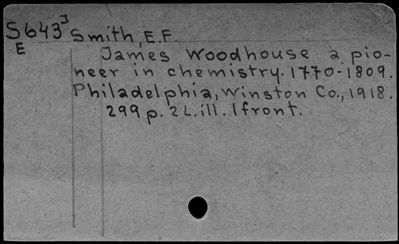 S643J Smith, E.F.
E
James Woodhouse a pio-
neer in chemistry. 1770-1809.
Philadelphia, Winston Co., 1918.
299 p. 2 L. ill. 1 front.